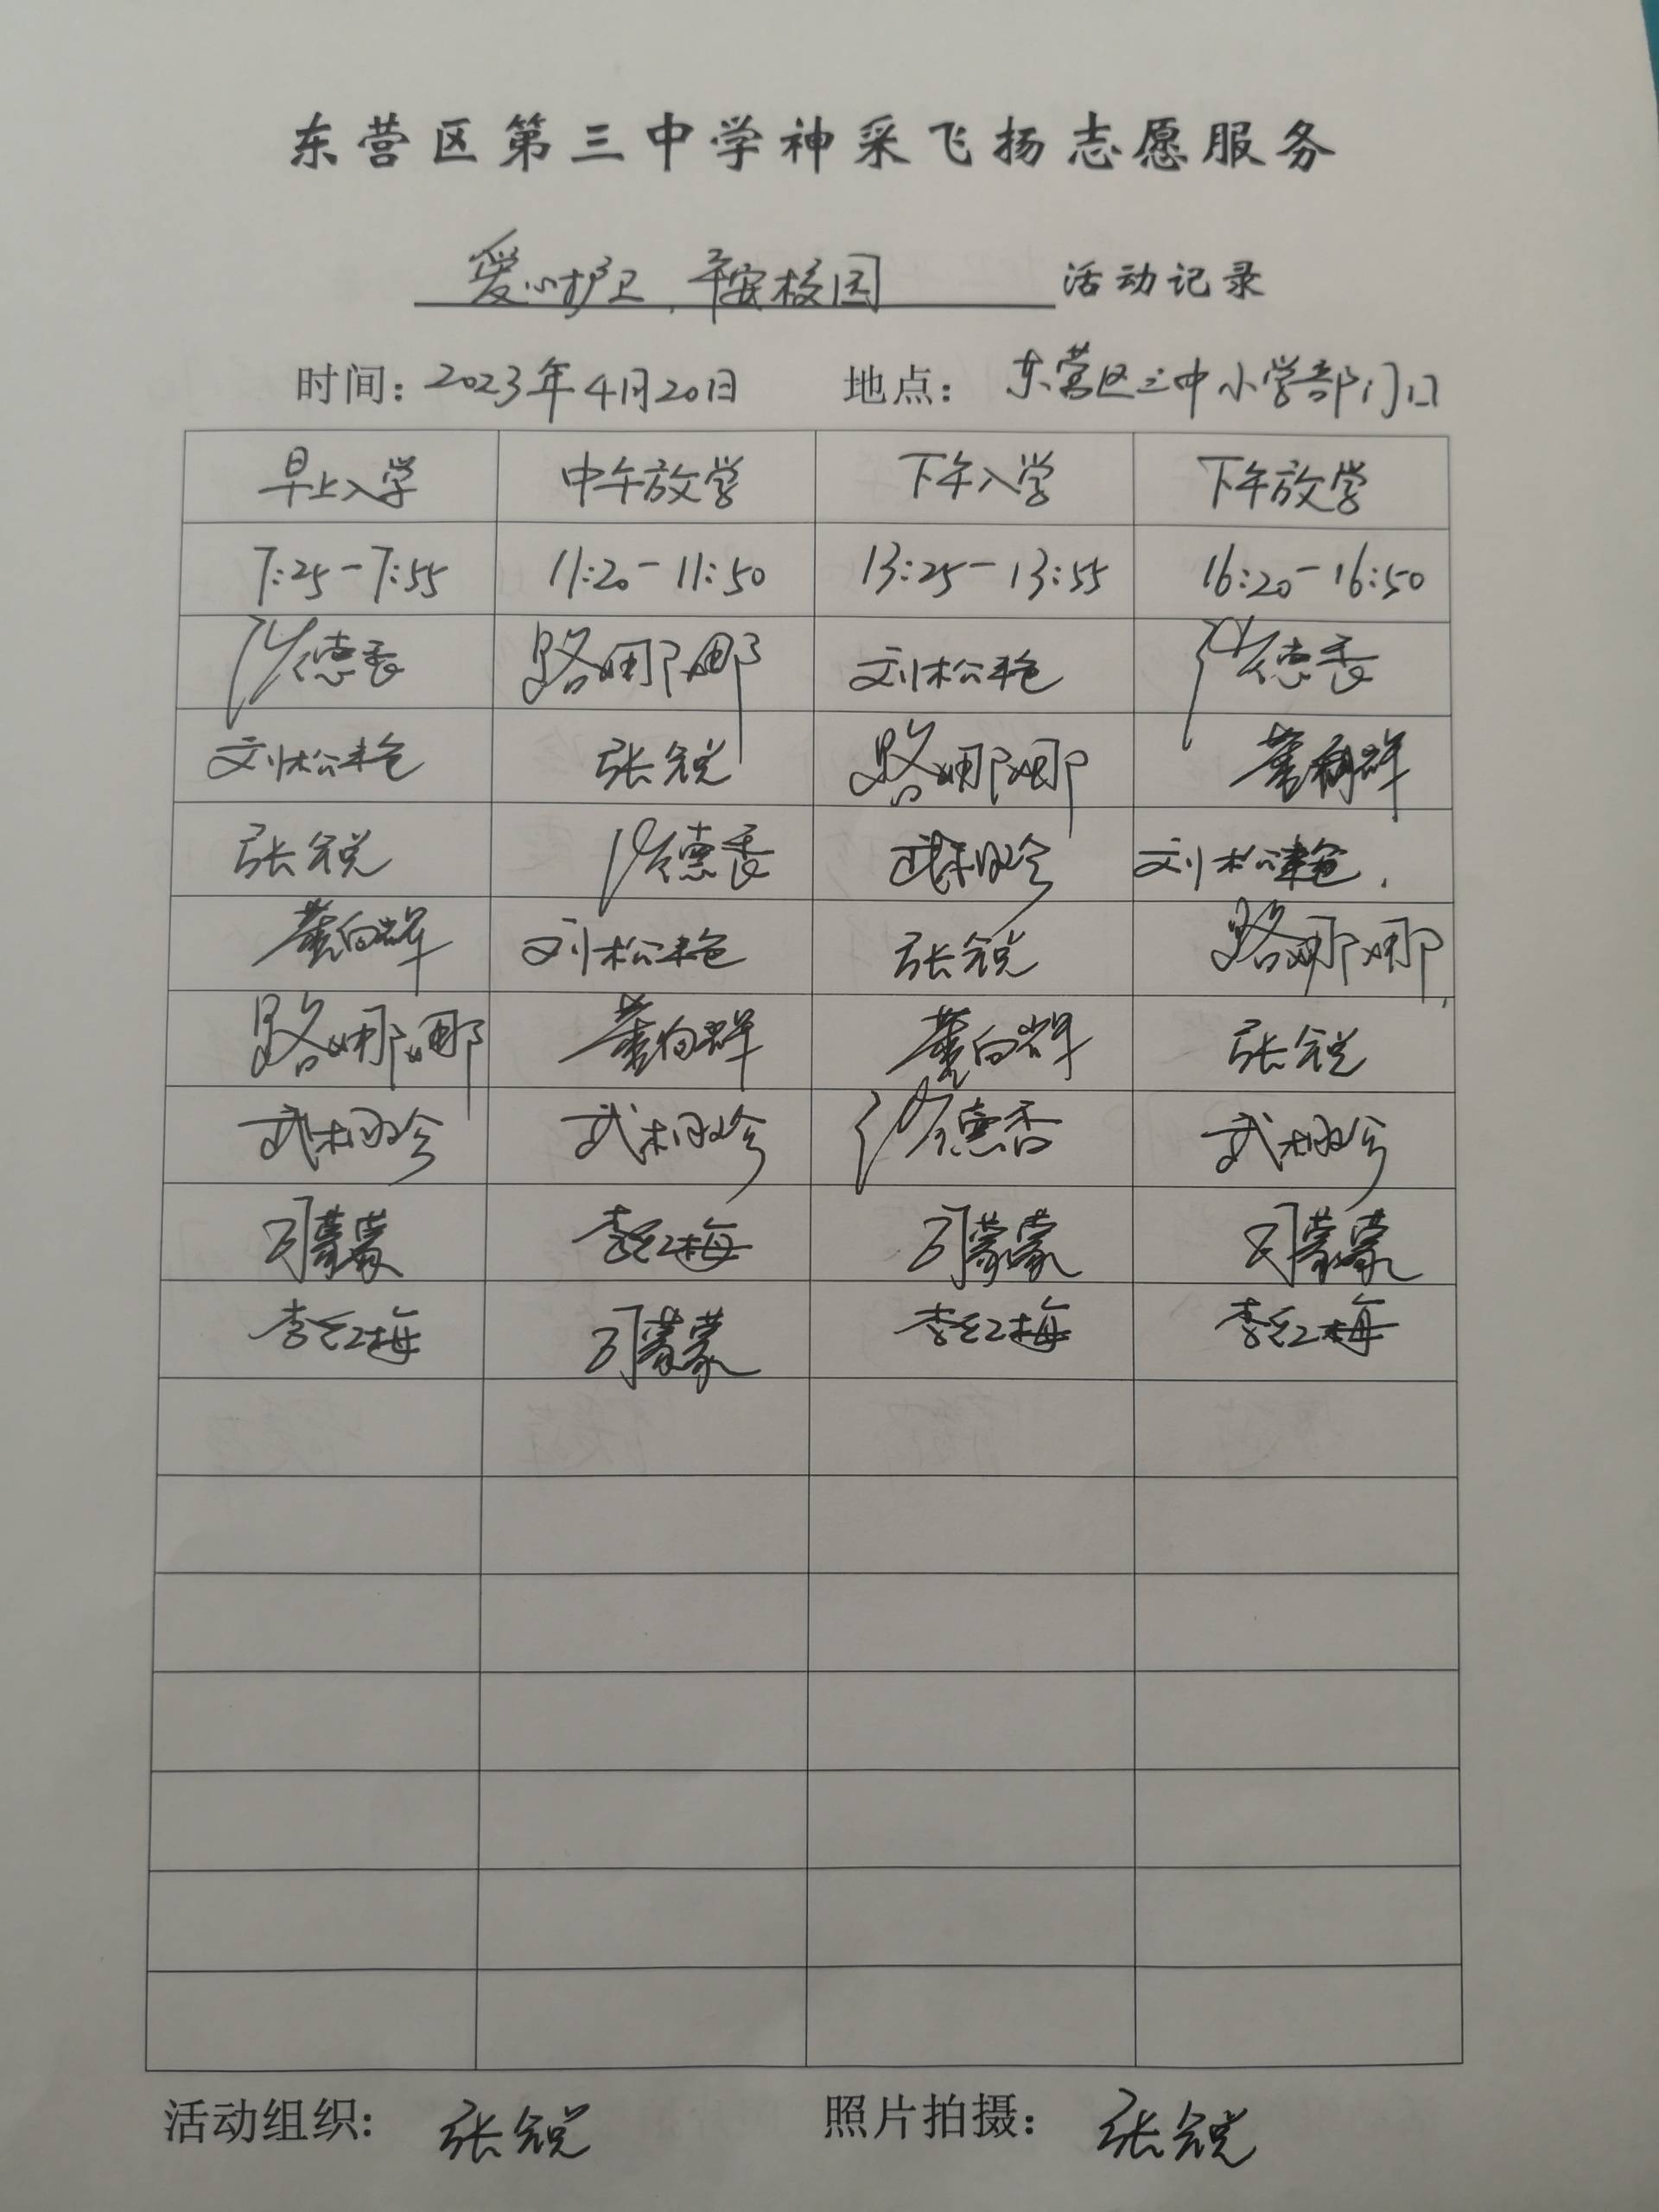 东营区第三中学神采飞扬志愿服务
爱心护卫,平安校园 活动记录
时间:2023年4月20日 地点:东营区三中小学部门口
早上入学 中午放学 下午入学 下午放学
7:25-7:55 11:20-11:50 13:25-13:55 16:20-16:50
德香 路娜娜 刘松艳 德香
刘松艳 张锐 路娜娜 董向群
张锐 德香 武相珍 刘松艳
董向群 刘松艳 张锐 路娜娜
路娜娜 董向群 董向群 张锐
武相珍 武相珍 德香 武相珍
刁蒙蒙 李红梅 刁蒙蒙 刁蒙蒙
李红梅 刁蒙蒙 李红梅 李红梅
活动组织: 张锐 照片拍摄: 张锐